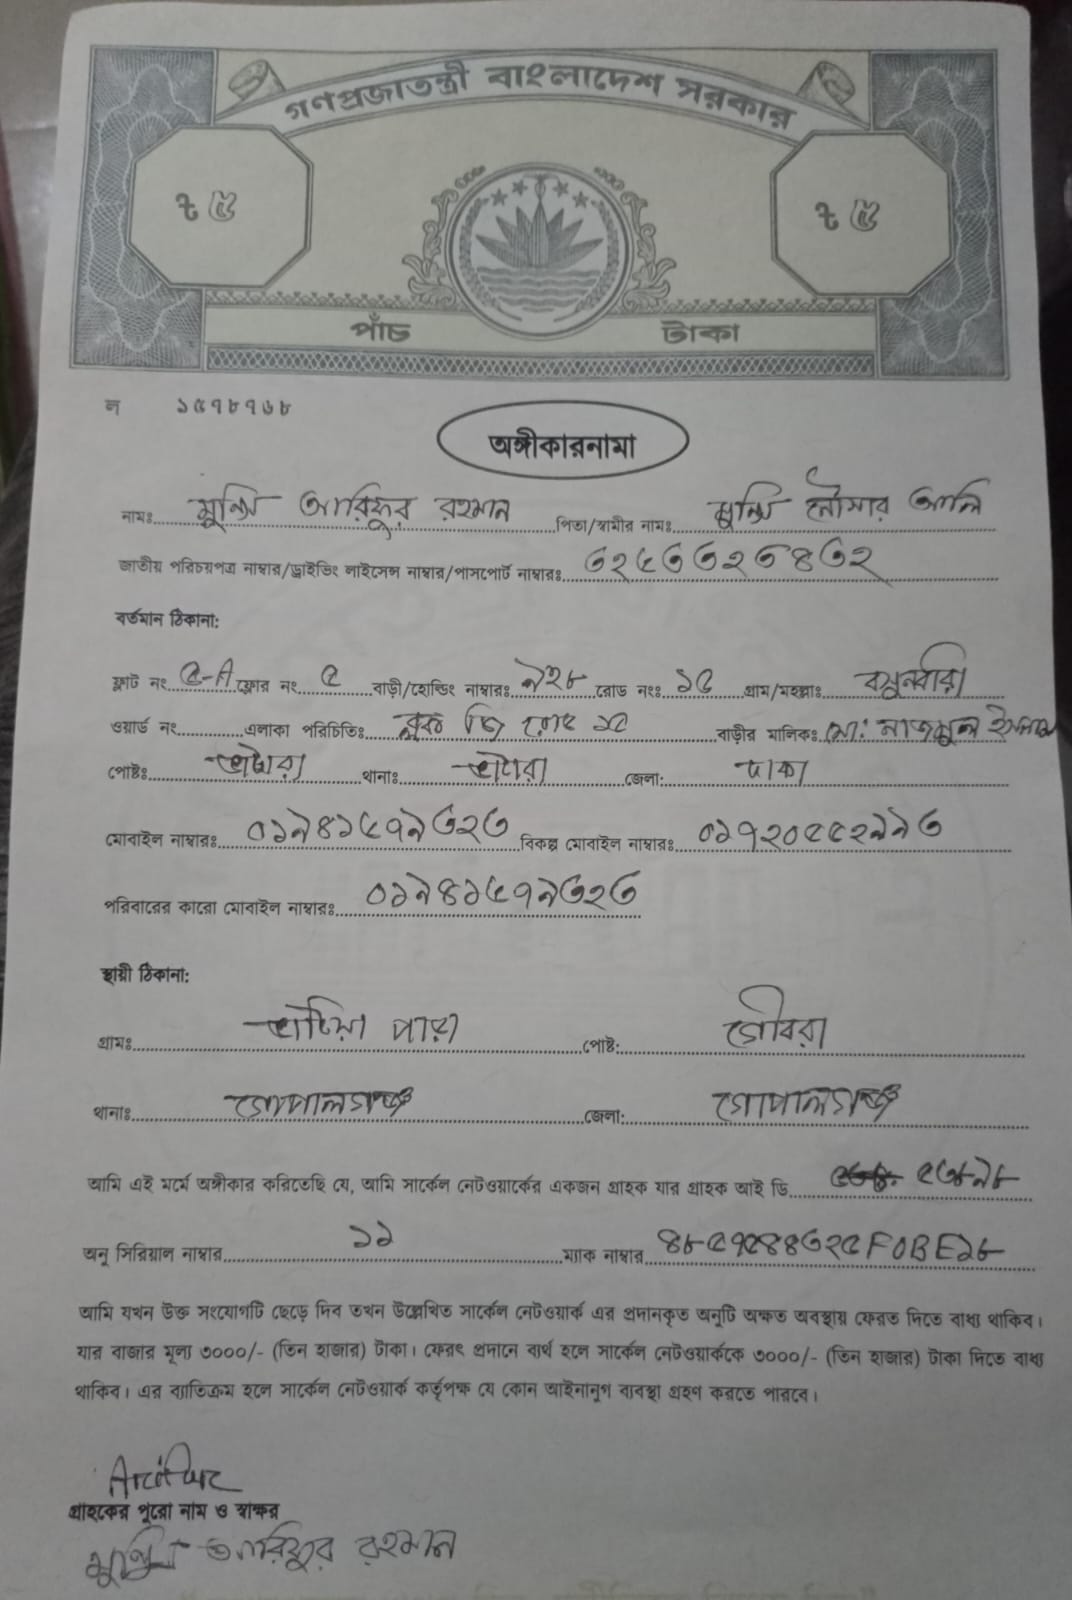 গণপ্রজাতন্ত্রী বাংলাদেশ সরকার
৳ ৫ ৳ ৫
পাঁচ টাকা
ল ১৫৭৮৭৬৮
অঙ্গীকারনামা
নামঃ মুন্সি আরিফুর রহমান পিতা/স্বামীর নামঃ মুন্সি নৌসার আলি
জাতীয় পরিচয়পত্র নাম্বার/ড্রাইভিং লাইসেন্স নাম্বার/পাসপোর্ট নাম্বারঃ ৩২৫৩৩২৩৪৩২
বর্তমান ঠিকানা:
ফ্লাট নং ৫-A ফ্লোর নং ৫ বাড়ী/হোল্ডিং নাম্বারঃ ৯২৮ রোড নংঃ ১৫ গ্রাম/মহল্লাঃ বসুন্ধরা
ওয়ার্ড নং এলাকা পরিচিতিঃ ব্লক জি রোড ১৫ বাড়ীর মালিকঃ মো: নাজমুল ইসলাম
পোষ্টঃ ভাটারা থানাঃ ভাটারা জেলা: ঢাকা
মোবাইল নাম্বারঃ ০১৯৪১৫৭৯৩২৩ বিকল্প মোবাইল নাম্বারঃ ০১৭২০৫৫২৯৯৩
পরিবারের কারো মোবাইল নাম্বারঃ ০১৯৪১৫৭৯৩২৩
স্থায়ী ঠিকানা:
গ্রামঃ ভাটিয়া পাড়া পোষ্ট: গোবরা
থানাঃ গোপালগঞ্জ জেলা: গোপালগঞ্জ
আমি এই মর্মে অঙ্গীকার করিতেছি যে, আমি সার্কেল নেটওয়ার্কের একজন গ্রাহক যার গ্রাহক আই ডি ৫৩৮৯৮
অনু সিরিয়াল নাম্বার ১১ ম্যাক নাম্বার ৪৮৫৭৫৪৪৩২৫F0BE১৮
আমি যখন উক্ত সংযোগটি ছেড়ে দিব তখন উল্লেখিত সার্কেল নেটওয়ার্ক এর প্রদানকৃত অনুটি অক্ষত অবস্থায় ফেরত দিতে বাধ্য থাকিব।
যার বাজার মূল্য ৩০০০/- (তিন হাজার) টাকা। ফেরৎ প্রদানে ব্যর্থ হলে সার্কেল নেটওয়ার্ককে ৩০০০/- (তিন হাজার) টাকা দিতে বাধ্য
থাকিব। এর ব্যাতিক্রম হলে সার্কেল নেটওয়ার্ক কর্তৃপক্ষ যে কোন আইনানুগ ব্যবস্থা গ্রহণ করতে পারবে।
গ্রাহকের পুরো নাম ও স্বাক্ষর
মুন্সি আরিফুর রহমান